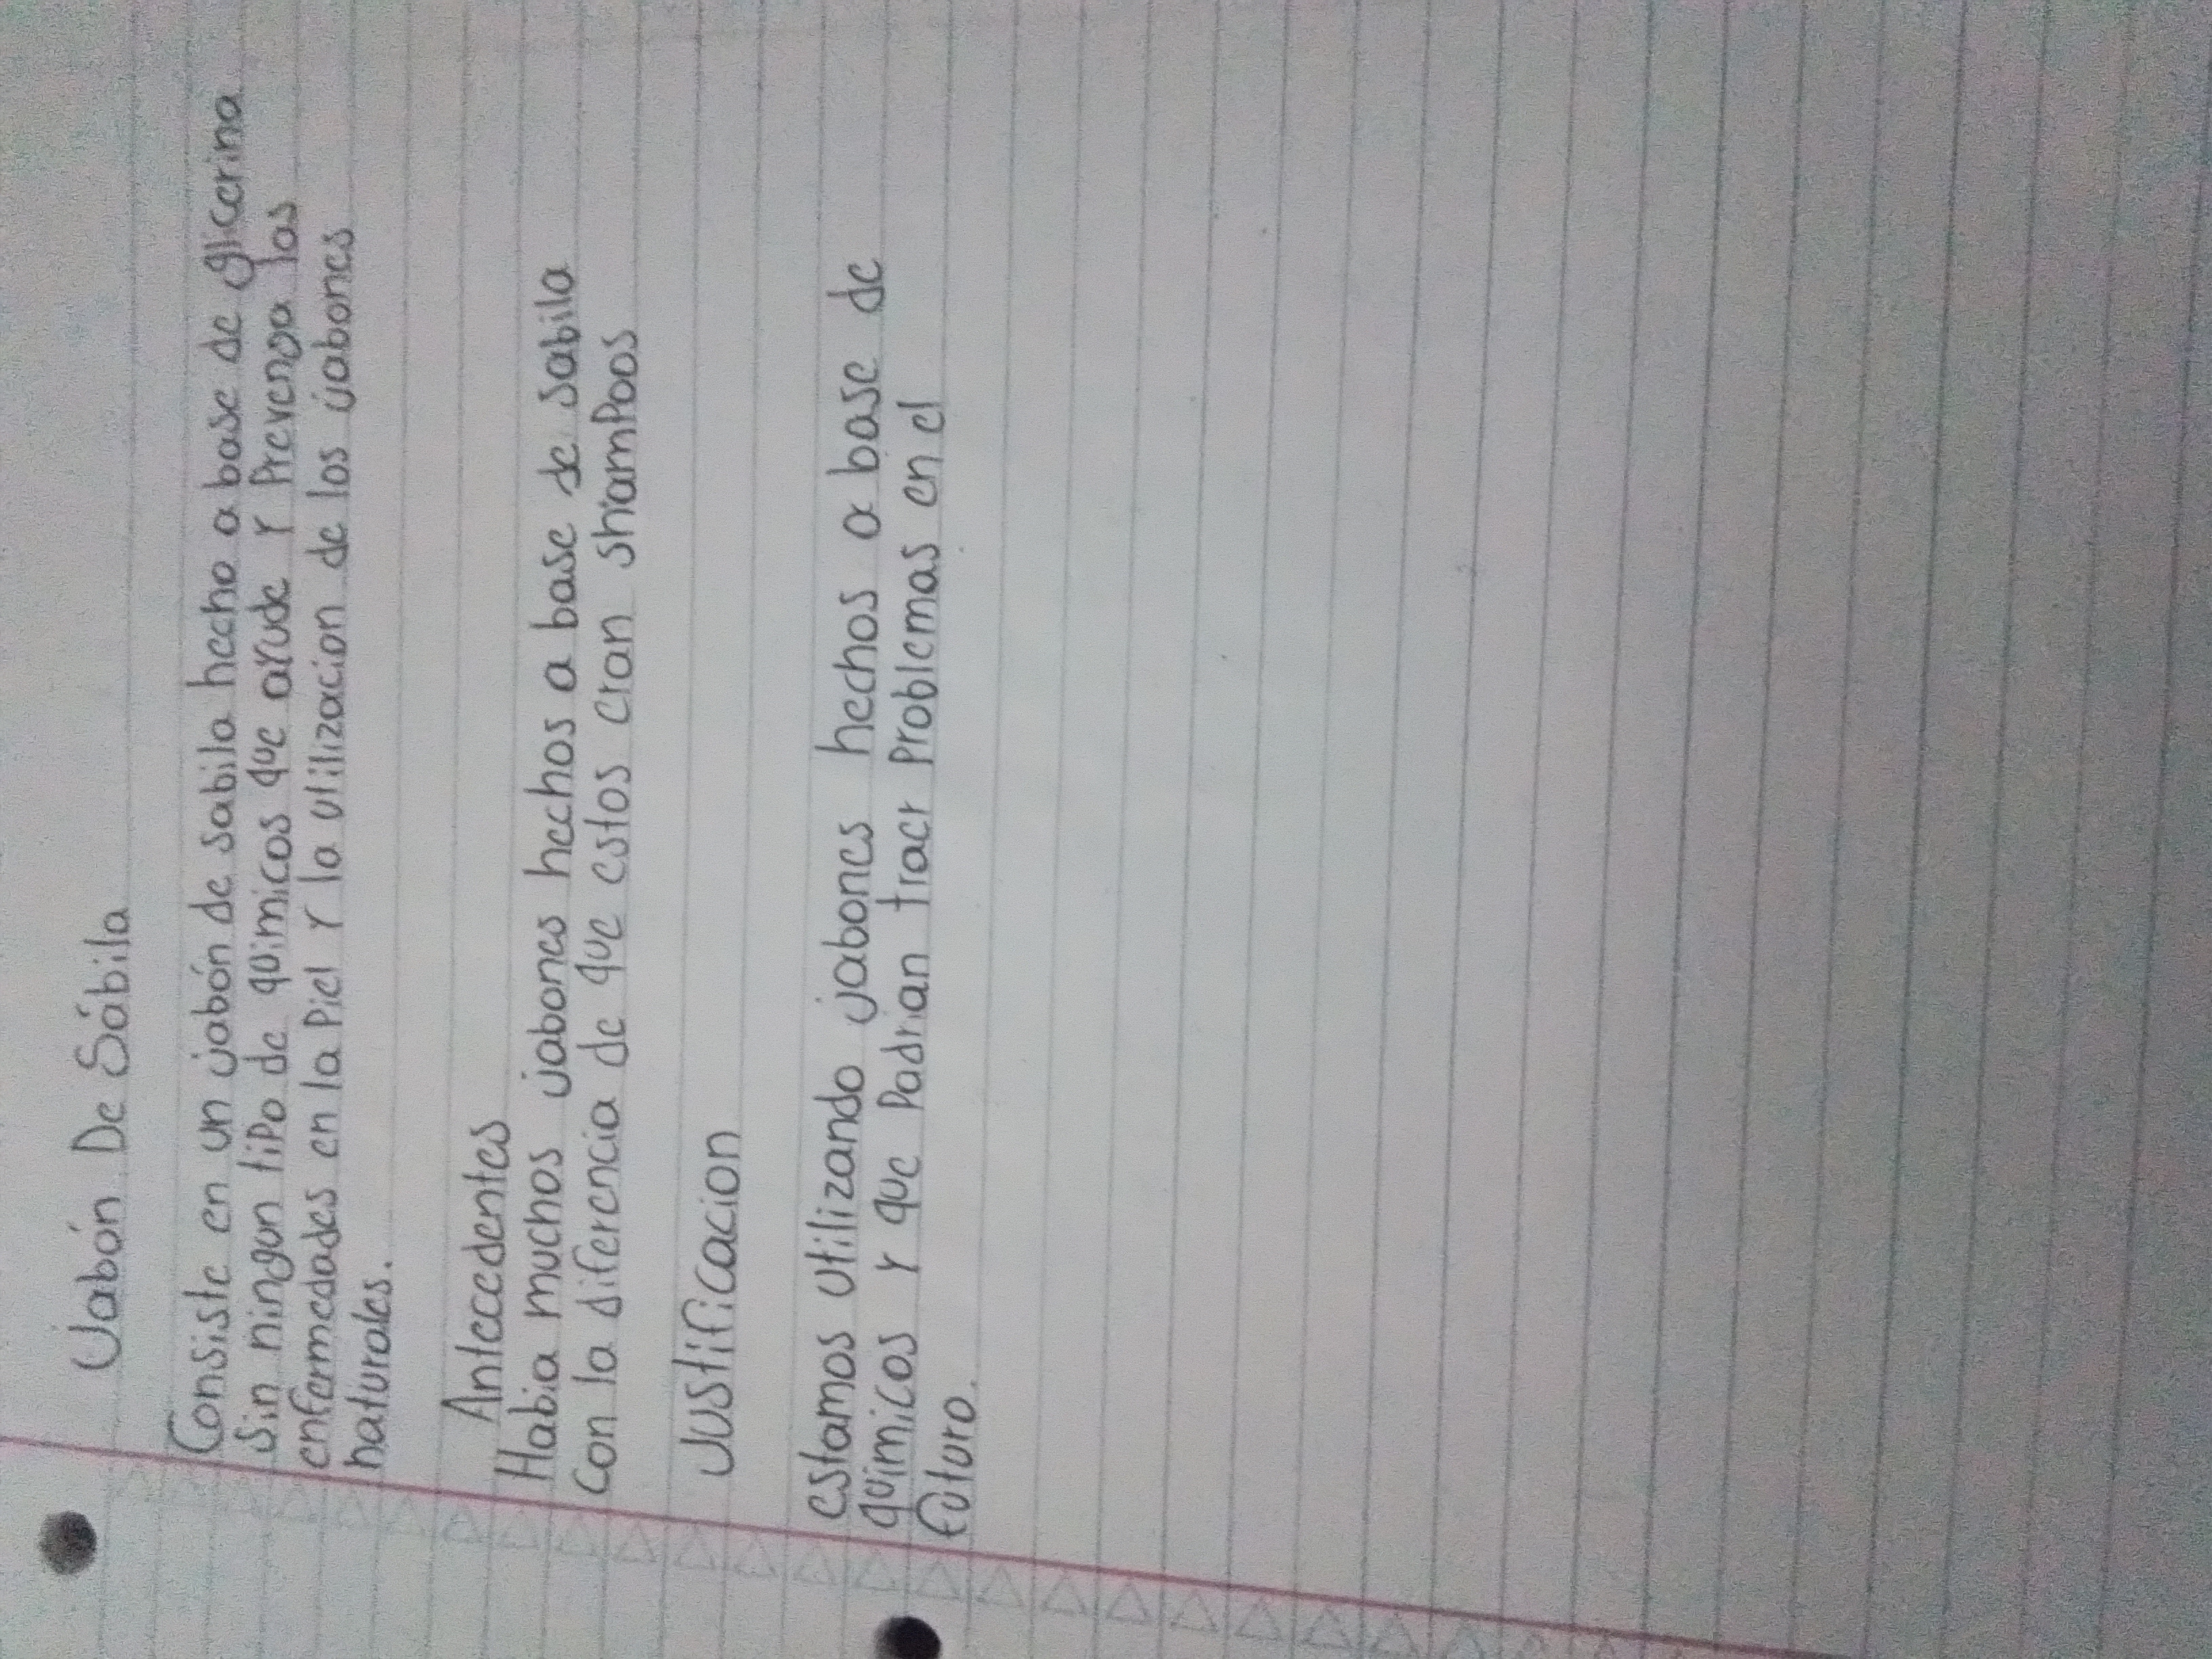 Jabón De Sábila
Consiste en un jabón de sabila hecho a base de glicerina
Sin ningun tipo de quimicos que ayude y Prevenga las
enfermedades en la Piel y la utilizacion de los jabones
naturales.
Antecedentes
Habia muchos jabones hechos a base de sabila
con la diferencia de que estos eran shampoos
Justificacion
estamos utilizando jabones hechos a base de
químicos y que Padrian traer Problemas en el
futuro.